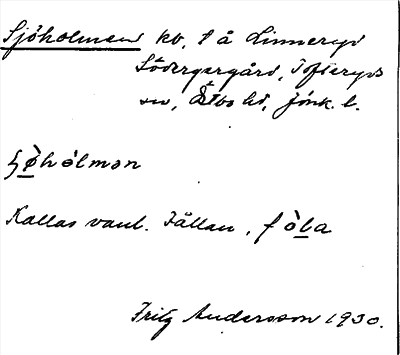 Sjöholmen kv, t å Linneryd
Södergård, Tofteryds
sn, Östbo hd, Jönk. l.
ɧø̀hòlmən
Kallas vanl. Fållan, fòla
Fritz Andersson 1930.